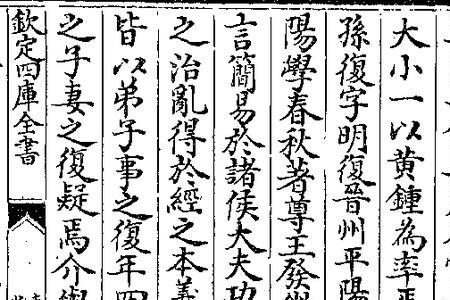 大小一以黄鍾為率
孫復字明復晉州平陽
陽學春秋著尊王發
言簡易於諸侯大夫功
之治亂得於經之本義
皆以弟子事之復年四
之子妻之復疑焉介
欽定四庫全書